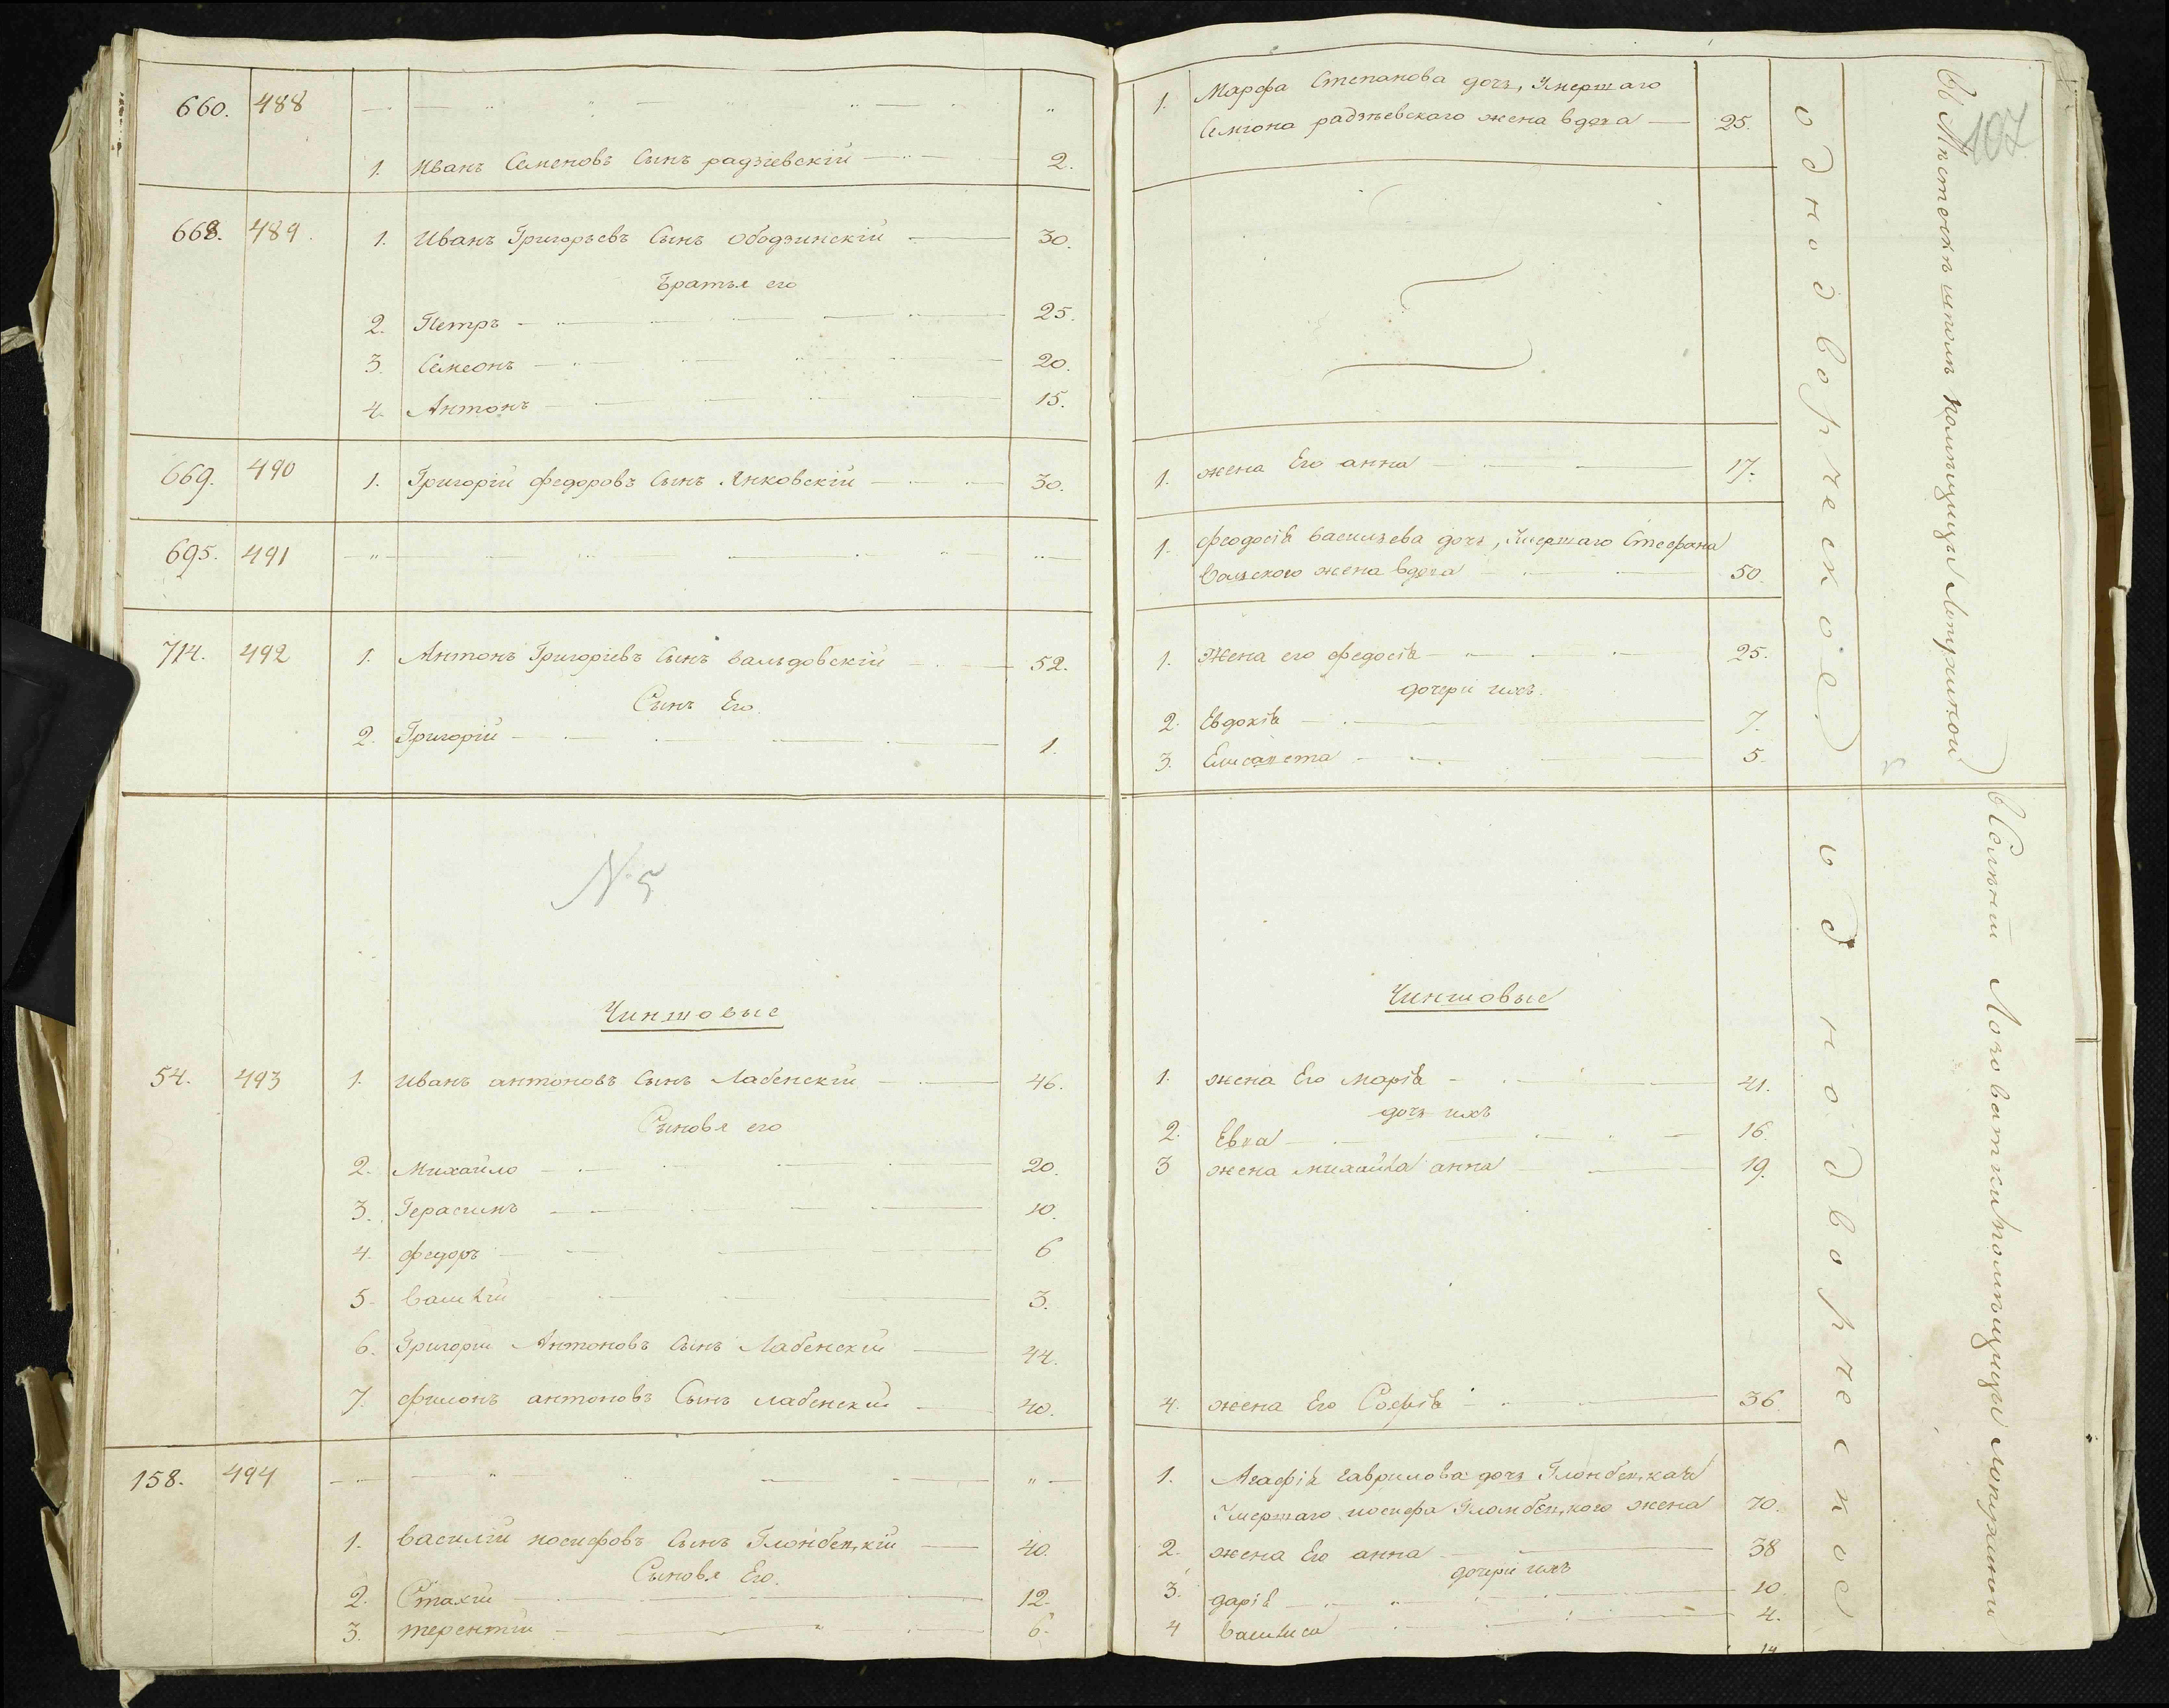 660. 488
1. Иванъ Семеновъ Сынъ радзіевскій 2.
668. 489. 1. Иванъ Григорьевъ Сынъ Ободзинскій 30.
Братья его
2. Петръ 25.
3. Семеонъ 20.
4. Антонъ 15.
669. 490 1. Григорій федоровъ Сынъ Янковскій 30.
695. 491
714. 492 1. Антонъ Григоріевъ Сынъ вальдовскій 52.
Сынъ Его.
2. Григорій 1.
№ 5
Чиншовые
54. 493 1. Иванъ антоновъ Сынъ Лабенскій 46.
Сыновья его
2. Михайло 20.
3. Герасимъ 10.
4. федоръ 6
5. Василій 3.
6. Григорій Антоновъ Сынъ Лабенскій 44.
7. филонъ антоновъ Сынъ лабенскій 40.
158. 494
1. василій иосифовъ Сынъ Глонбецкій 40.
Сыновья Его.
2. Стахій 12.
3. терентій 6.
107
1. Марфа Степанова дочь, Умершаго
Семіона радзѣевскаго жена вдова 25.
1. жена Его анна 17.
1. феодосія васильева дочь, Умершаго Стефана
жена вдова 50.
1. Жена его федосія 25.
дочери ихъ.
2. Евдокія 7.
3. Елисавета 5.
Чиншовые
1. жена Его марія 41.
дочь ихъ
2. Евва 16.
3 жена михайла анна 19.
4. жена Его Софія 36.
1. Агафія гаврилова дочь Глонбецкая
Умершаго иосифа Гломбецкого жена 70.
2. жена Его анна 38
дочери ихъ
3. дарія 10.
4 Василиса 4.
14
однодворческое
Въ Мѣстечкѣ шполѣ помѣщицы Лопухиной
однодворческое
Въ Селѣніи Лозоватки помѣщицы Лопухиной
5